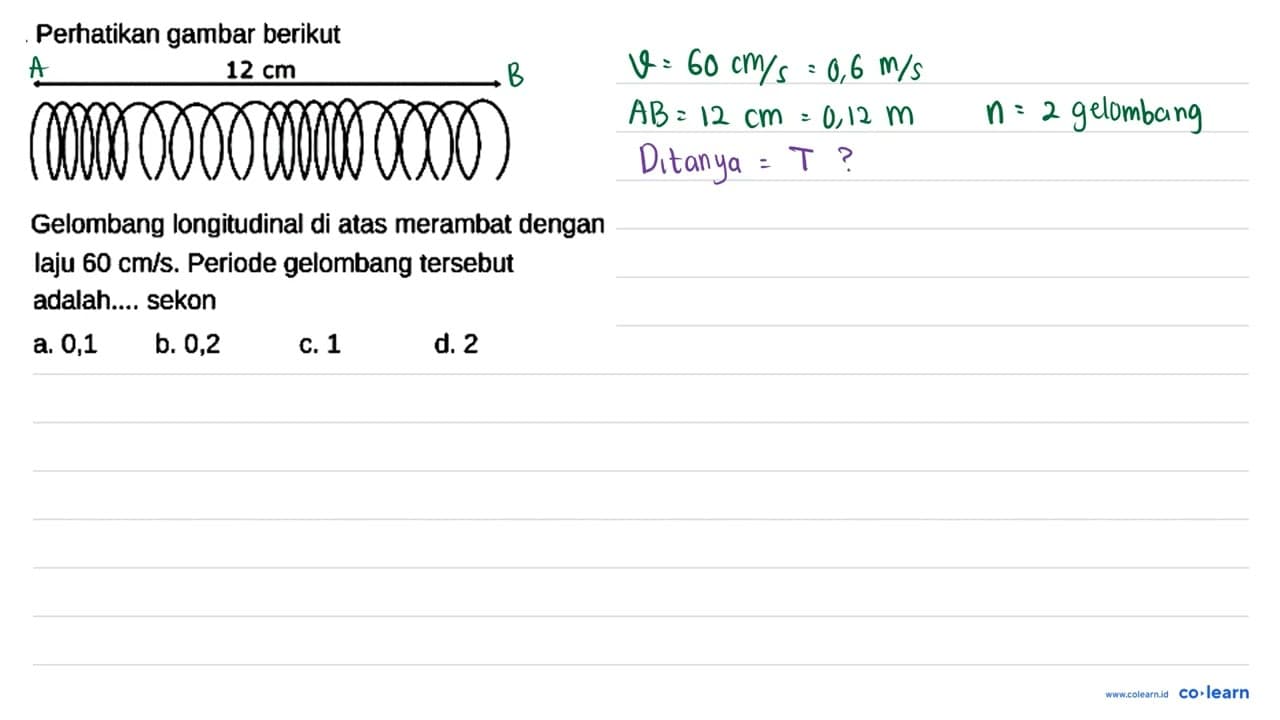 . Perhatikan gambar berikut
A 12 cm B
Gelombang longitudinal di atas merambat dengan
laju 60 cm/s. Periode gelombang tersebut
adalah.... sekon
a. 0,1 b. 0,2 c. 1 d. 2
v = 60 cm/s = 0,6 m/s
AB = 12 cm = 0,12 m n = 2 gelombang
Ditanya = T ?
www.colearn.id co•learn